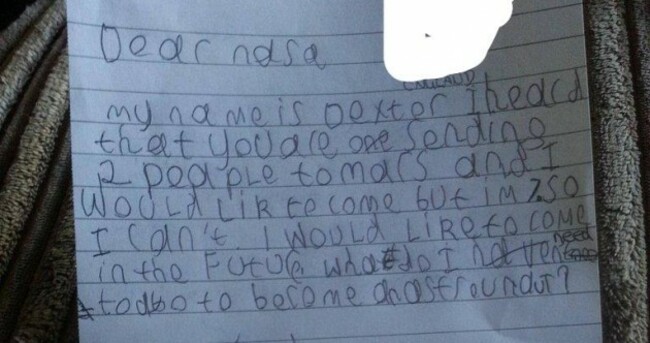 Dear nasa
ENGLAUD
my name is Dexter I heard
that you are sending
2 peaple to mars and I
WOULd LiK to come but im 7. SO
I Can't. I WOULD LiKe to come
in the FUtUre what do I need
to do to become an astrounout?